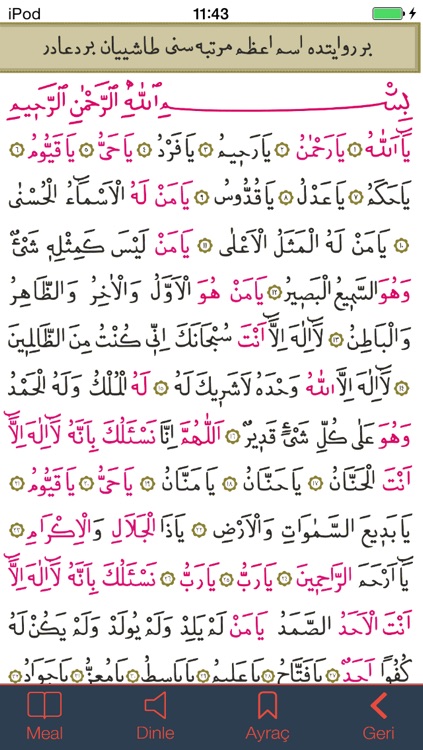 iPod 11:43
بر روايتده اسم اعظم مرتبه سنى طاشييان بر دعادر
بِسْمِ اللّٰهِ الرَّحْمٰنِ الرَّحِيمِ
يَا اَللّٰهُ ۝١ يَا رَحْمٰنُ ۝٢ يَا رَحِيمُ ۝٣ يَا فَرْدُ ۝٤ يَا حَىُّ ۝٥ يَا قَيُّومُ ۝٦
يَا حَكَمُ ۝٧ يَا عَدْلُ ۝٨ يَا قُدُّوسُ ۝٩ يَا مَنْ لَهُ الْاَسْمَاءُ الْحُسْنٰى
۝١٠ يَا مَنْ لَهُ الْمَثَلُ الْاَعْلٰى ۝١١ يَا مَنْ لَيْسَ كَمِثْلِهِ شَىْءٌ
وَهُوَ السَّمِيعُ الْبَصِيرُ ۝١٢ يَا مَنْ هُوَ الْاَوَّلُ وَالْاٰخِرُ وَالظَّاهِرُ
وَالْبَاطِنُ ۝١٣ لَا اِلٰهَ اِلَّا اَنْتَ سُبْحَانَكَ اِنِّى كُنْتُ مِنَ الظَّالِمِينَ
۝١٤ لَا اِلٰهَ اِلَّا اللّٰهُ وَحْدَهُ لَا شَرِيكَ لَهُ ۝١٥ لَهُ الْمُلْكُ وَلَهُ الْحَمْدُ
وَهُوَ عَلٰى كُلِّ شَىْءٍ قَدِيرٌ ۝١٦ اَللّٰهُمَّ اِنَّا نَسْئَلُكَ بِاَنَّهُ لَا اِلٰهَ اِلَّا
اَنْتَ الْحَنَّانُ ۝١٧ يَا حَنَّانُ ۝١٨ يَا مَنَّانُ ۝١٩ يَا حَىُّ ۝٢٠ يَا قَيُّومُ ۝٢١
يَا بَدِيعَ السَّمٰوَاتِ وَالْاَرْضِ ۝٢٢ يَا ذَا الْجَلَالِ وَالْاِكْرَامِ ۝٢٣
يَا اَرْحَمَ الرَّاحِمِينَ ۝٢٤ يَا رَبُّ ۝٢٥ يَا رَبُّ ۝٢٦ نَسْئَلُكَ بِاَنَّهُ لَا اِلٰهَ اِلَّا
اَنْتَ الْاَحَدُ الصَّمَدُ يَا مَنْ لَمْ يَلِدْ وَلَمْ يُولَدْ وَلَمْ يَكُنْ لَهُ
كُفُوًا اَحَدٌ يَا فَتَّاحُ يَا عَلِيمُ يَا بَاسِطُ يَا مُعِزُّ يَا جَوَادُ
Meal Dinle Ayraç Geri